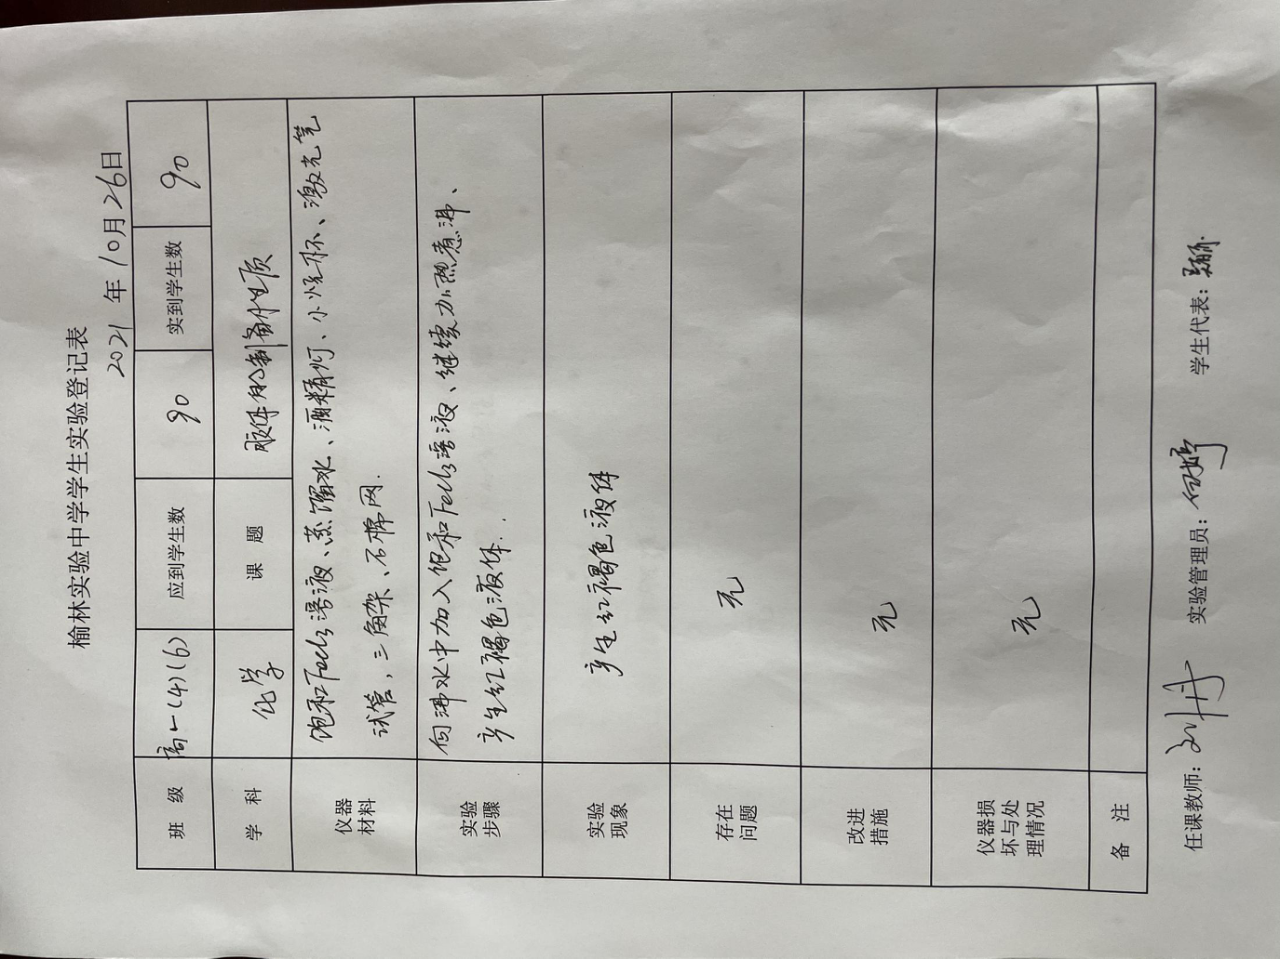 榆林实验中学学生实验登记表
2021 年 10月 26日
班 级 高一(4)(6) 应到学生数 90 实到学生数 90
学 科 化学 课 题 胶体的制备和性质
仪器材料 饱和FeCl3溶液、蒸馏水、酒精灯、小烧杯、激光笔
试管,三角架、石棉网.
实验步骤 向沸水中加入饱和FeCl3溶液、继续加热煮沸、
产生红褐色液体.
实验现象 产生红褐色液体
存在问题 无
改进措施 无
仪器损坏与处理情况 无
备 注
任课教师: 刘丹 实验管理员: 学生代表: